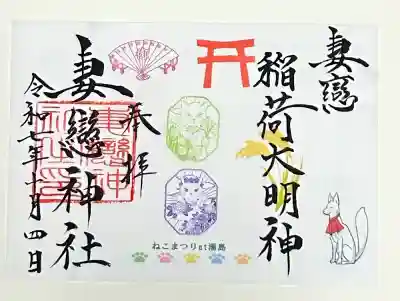 妻戀
稲荷大明神
奉拝
妻戀神社
令和七年二月四日
ねこまつりat湯島